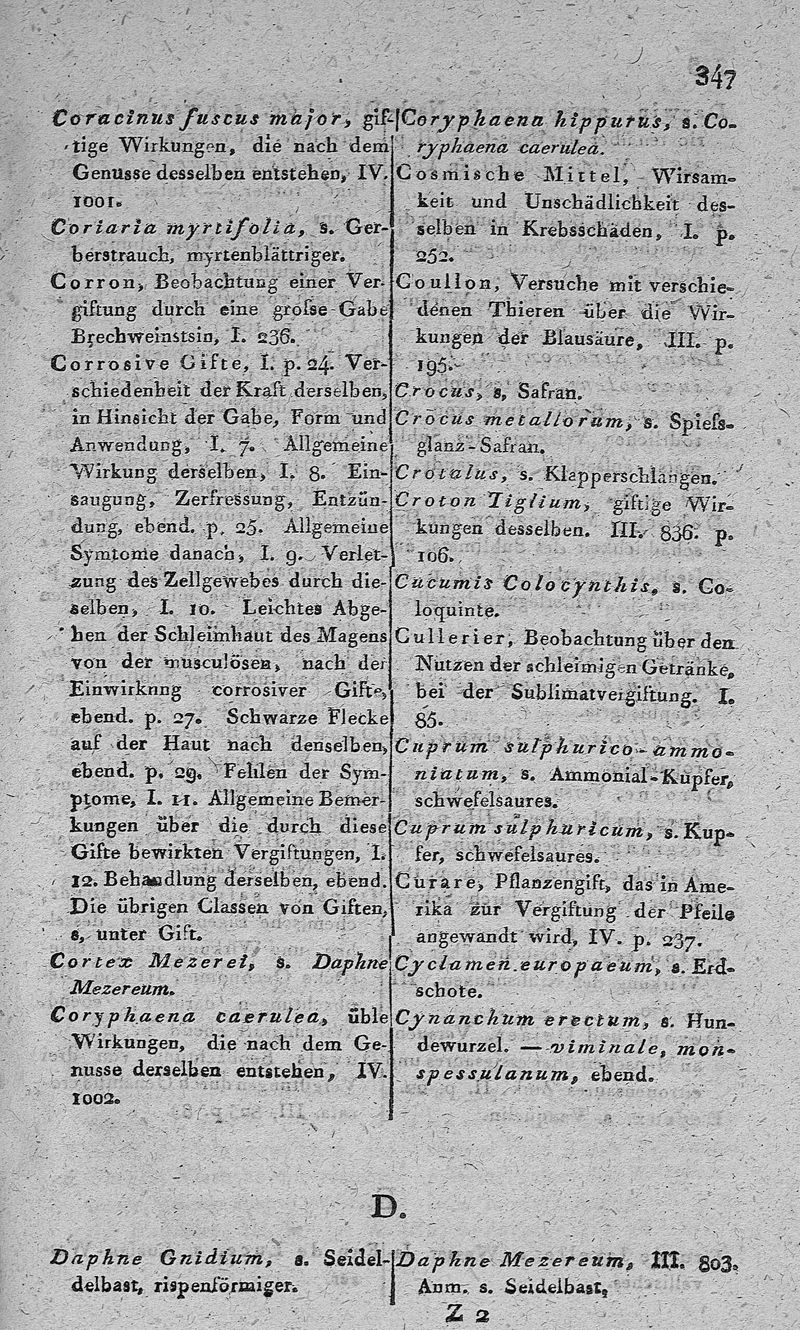 347
Coracinus fuscus major, gif-
tige Wirkungen, die nach dem
Genusse desselben entstehen, IV.
1001.
Coriaria myrtifolia, s. Ger-
berstrauch, myrtenblättriger.
Corron, Beobachtung einer Ver-
giftung durch eine grofse Gabe
Brechweinstsin, I. 236.
Corrosive Gifte, I. p. 24. Ver-
schiedenheit der Kraft derselben,
in Hinsicht der Gabe, Form und
Anwendung, I. 7. Allgemeine
Wirkung derselben, I. 8. Ein-
saugung, Zerfressung, Entzün-
dung, ebend. p. 25. Allgemeine
Symtome danach, I. 9. Verlet-
zung des Zellgewebes durch die-
selben, I. 10. Leichtes Abge-
hen der Schleimhaut des Magens
von der musculösen, nach der
Einwirknng corrosiver Gifte,
ebend. p. 27. Schwarze Flecke
auf der Haut nach denselben,
ebend. p. 29. Fehlen der Sym-
ptome, I. 11. Allgemeine Bemer-
kungen über die durch diese
Gifte bewirkten Vergiftungen, I.
12. Behandlung derselben, ebend.
Die übrigen Classen von Giften,
s, unter Gift.
Cortex Mezerei, s. Daphne
Mezereum.
Coryphaena caerulea, üble
Wirkungen, die nach dem Ge-
nusse derselben entstehen, IV.
1002.
Coryphaena hippurus, s. Co-
ryphaena caerulea.
Cosmische Mittel, Wirsam-
keit und Unschädlichkeit des-
selben in Krebsschäden, I. p.
252.
Coullon, Versuche mit verschie-
denen Thieren über die Wir-
kungen der Blausäure, III. p.
195.
Crocus, s, Safran.
Crocus metallorum, s. Spiefs-
glanz-Safran.
Crotalus, s. Klapperschlangen.
Croton Tiglium, giftige Wir-
kungen desselben. III. 836. p.
106.
Cucumis Colocynthis, s. Co-
loquinte.
Cullerier, Beobachtung über den
Nutzen der schleimigen Getränke,
bei der Sublimatvergiftung. I.
85.
Cuprum sulphurico-ammo-
niatum, s. Ammonial-Kupfer,
schwefelsaures.
Cuprum sulphuricum, s. Kup-
fer, schwefelsaures.
Curare, Pflanzengift, das in Ame-
rika zur Vergiftung der Pfeile
angewandt wird, IV. p. 237.
Cyclamen europaeum, s. Erd-
schote.
Cynanchum erectum, s. Hun-
dewurzel. — viminale, mon-
spessulanum, ebend.
D.
Daphne Gnidium, s. Seidel-
delbast, rispenförmiger.
Daphne Mezereum, III. 803.
Anm. s. Seidelbast,
Z 2